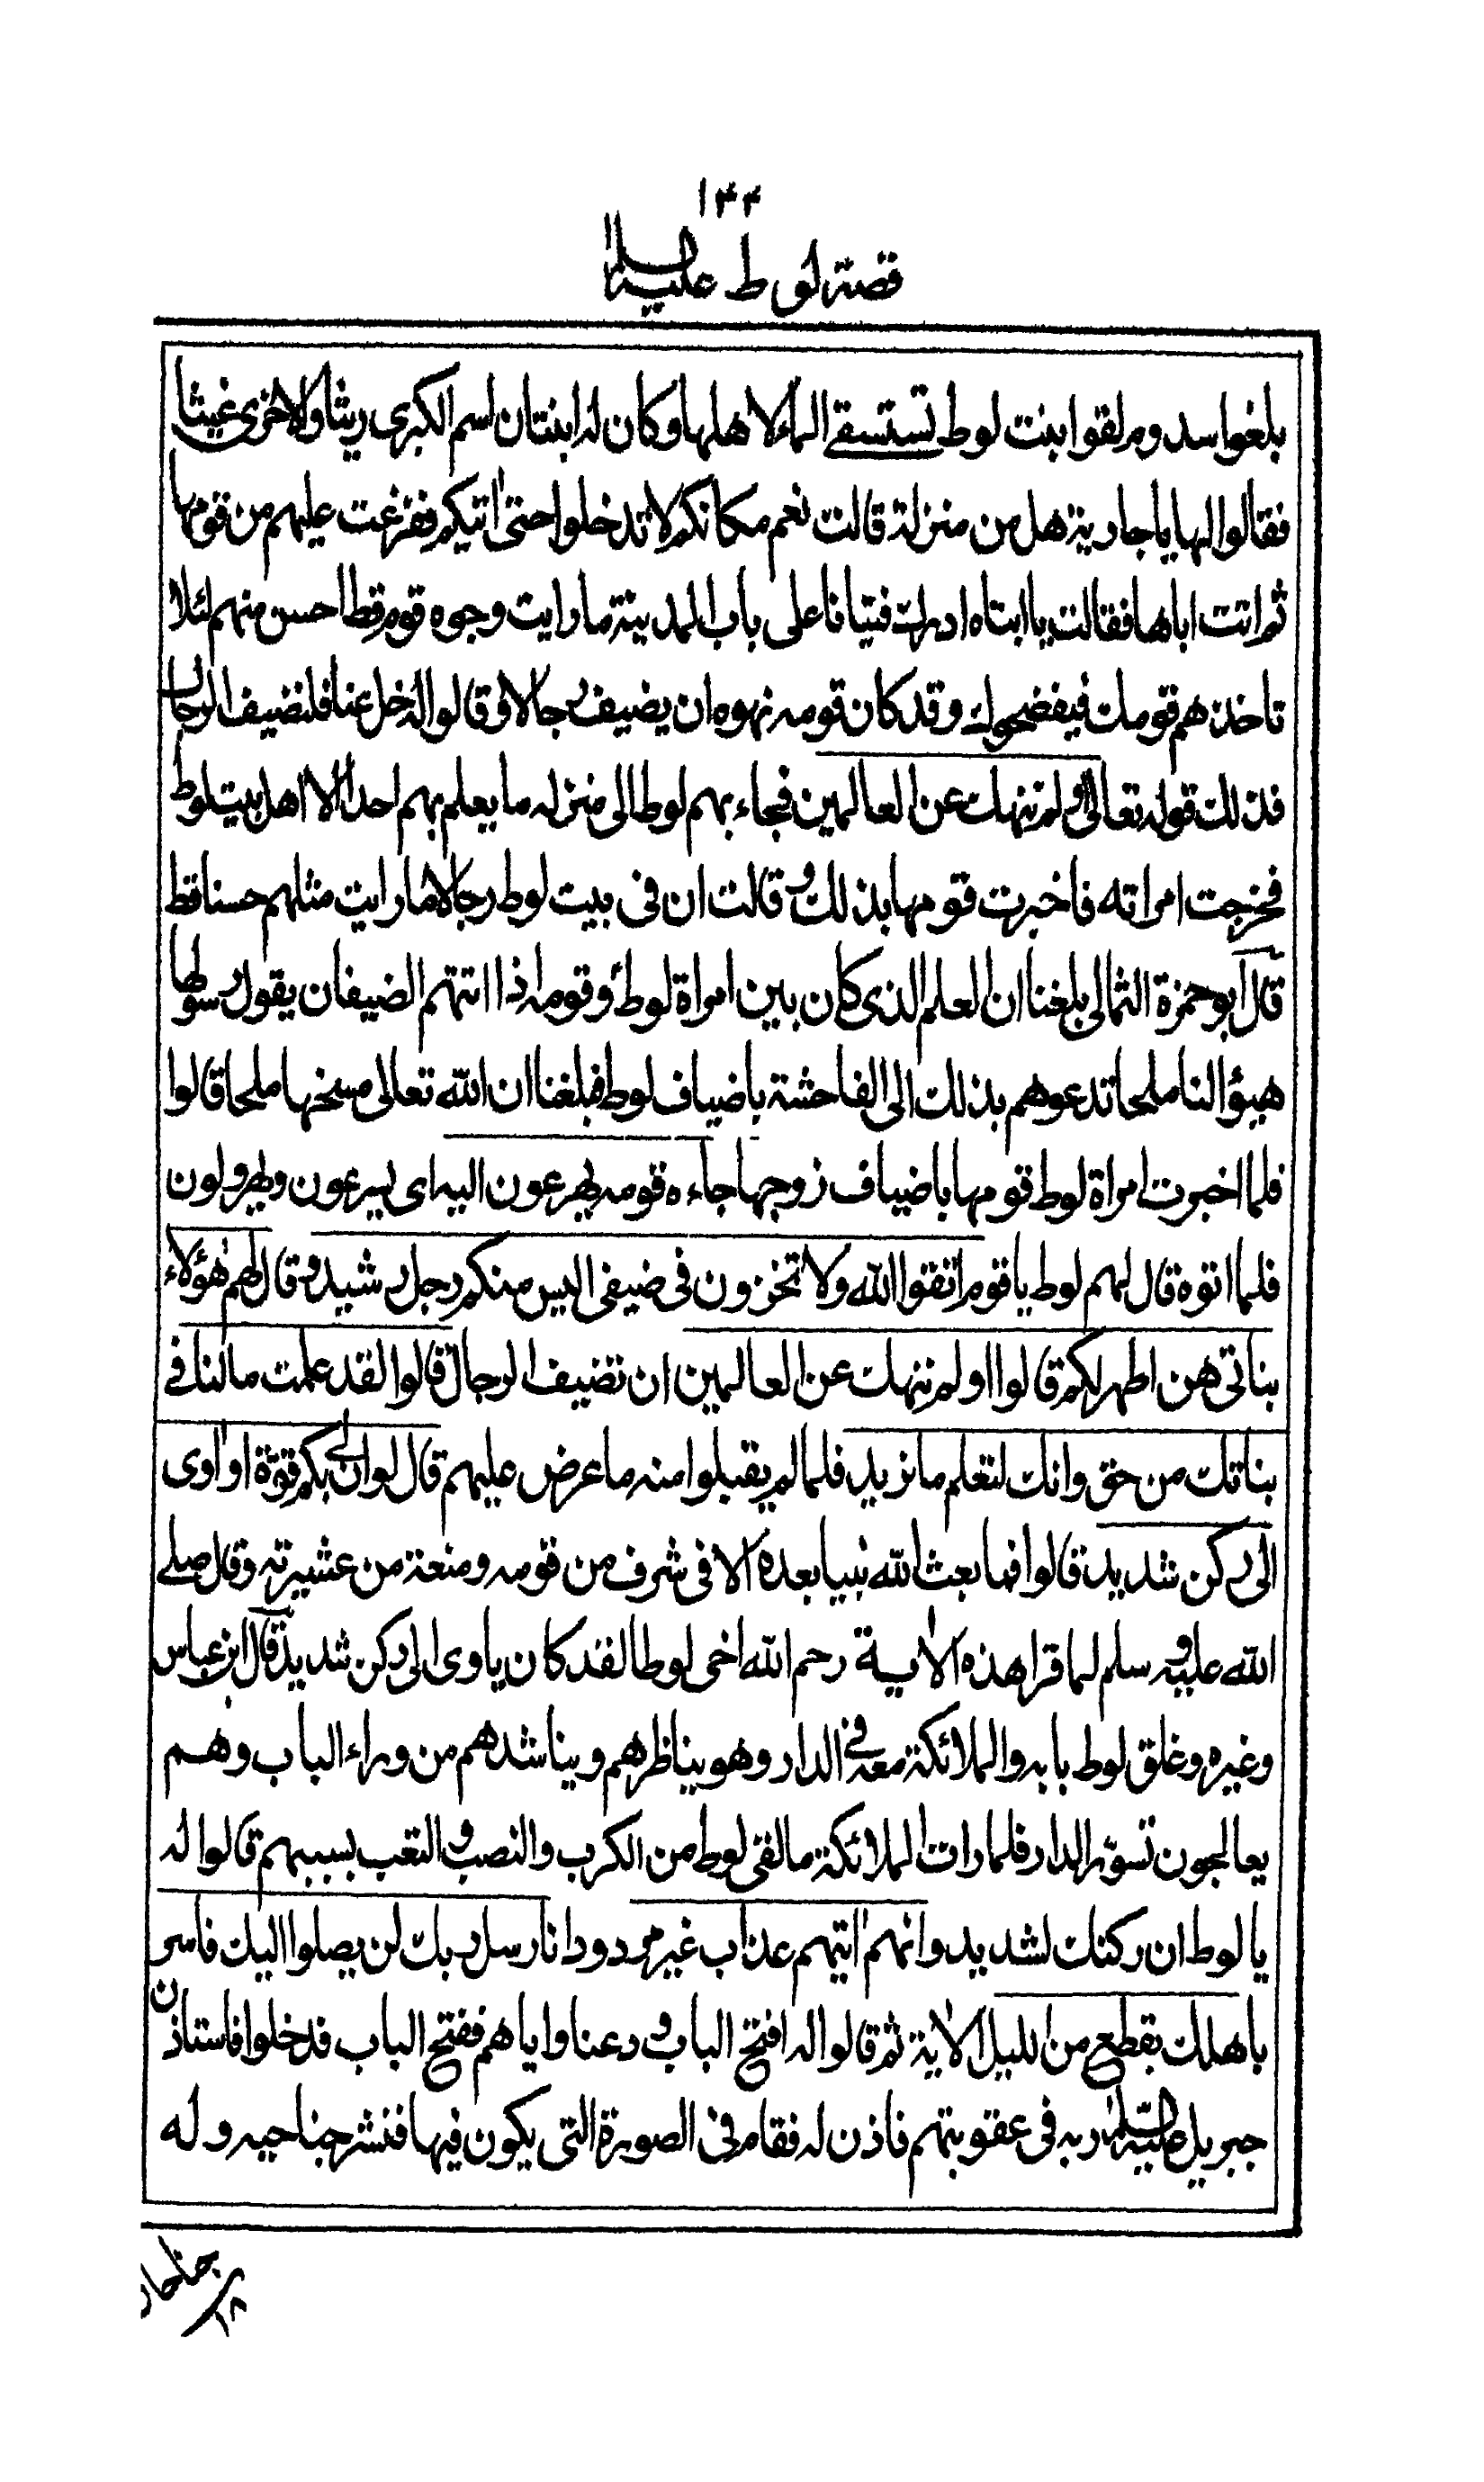 ١٤٤
قصة لوط عليه السلام
بلغوا سدوم لقوا بنت لوط تستسقے الماء لاهلها وكان له ابنتان اسم الكبرى ريثا والاخرى غيثا
فقالوا لها يا جارية هل من منزلة قالت نعم مكانكم لا تدخلوا حتى اتيكم ففزعت عليهم من قومها
ثم اتت اباها فقالت يا ابتاه ادرك فتيانا على باب المدينة ما رايت وجوه قوم قط احسن منهم لئلا
تاخذهم قومك فيفضحوك وقد كان قومه نهوه ان يضيف رجالا وقالوا له خل عنا فلنضيف الرجال
فذلك قوله تعالى اولم ننهك عن العالمين فجاء بهم لوط الى منزله ما يعلم بهم احد الا اهل بيت لوط
فخرجت امراته فاخبرت قومها بذلك وقالت ان فى بيت لوط رجالا ما رايت مثلهم حسنا قط
قال ابو حمزة الثمالى بلغنا ان العلم الذى كان بين امراة لوط وقومه اذا اتتهم الضيفان يقول رسولها
هيؤا لنا ملحا تدعوهم بذلك الى الفاحشة باضياف لوط فبلغنا ان الله تعالى مسخها ملحا قالوا
فلما اخبرت امراة لوط قومها باضياف زوجها جاءه قومه يهرعون اليه اى يسرعون ويهرولون
فلما اتوه قال لهم لوط يا قوم اتقوا الله ولا تخزون فى ضيفى اليس منكم رجل رشيد وقال لهم هؤلاء
بناتى هن اطهر لكم قالوا اولم ننهك عن العالمين ان تضيف الرجال قالوا لقد علمت مالنا فے
بناتك من حق وانك لتعلم ما نريد فلما لم يقبلوا منه ما عرض عليهم قال لو ان لى بكم قوة او اوى
الى ركن شديد قالوا فما بعث الله نبيا بعده الا فى شرف من قومه ومنعة من عشيرته وقال صلے
الله عليه وسلم لما قرا هذه الاية رحم الله اخى لوطا لقد كان ياوى الى ركن شديد قال ابن عباس
وغيره وغلق لوط بابه والملائكة معه فے الدار وهو يناظرهم ويناشدهم من وراء الباب وهم
يعالجون تسور الدار فلما رات الملائكة ما لقى لوط من الكرب والنصب والتعب بسببهم قالوا له
يا لوط ان ركنك لشديد وانهم اتيهم عذاب غير مردود انا رسل ربك لن يصلوا اليك فاسر
باهلك بقطع من الليل الاية ثم قالوا له افتح الباب ودعنا واياهم ففتح الباب فدخلوا فاستاذن
جبريل عليه السلام ربه فى عقوبتهم فاذن له فقام فى الصورة التى يكون فيها فنشر جناحيه وله
جناحان